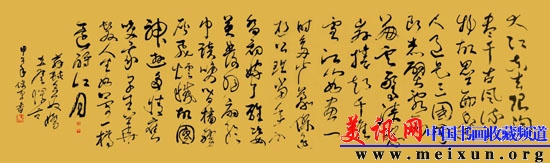 大江東去浪淘
盡千古風流人
物故壘西邊
人道是三國周
郎赤壁亂石
崩雲驚濤裂
岸捲起千堆
雪江山如畫一
時多少豪傑遙
想公瑾當年小
喬初嫁了雄姿
英發羽扇綸
巾談笑間檣櫓
灰飛煙滅故國
神遊多情應
笑我早生華
髮人生如夢一樽
還酹江月
蘇軾念奴嬌
赤壁懷古
甲午年
美讯网
中国书画收藏频道
www.meixun.org